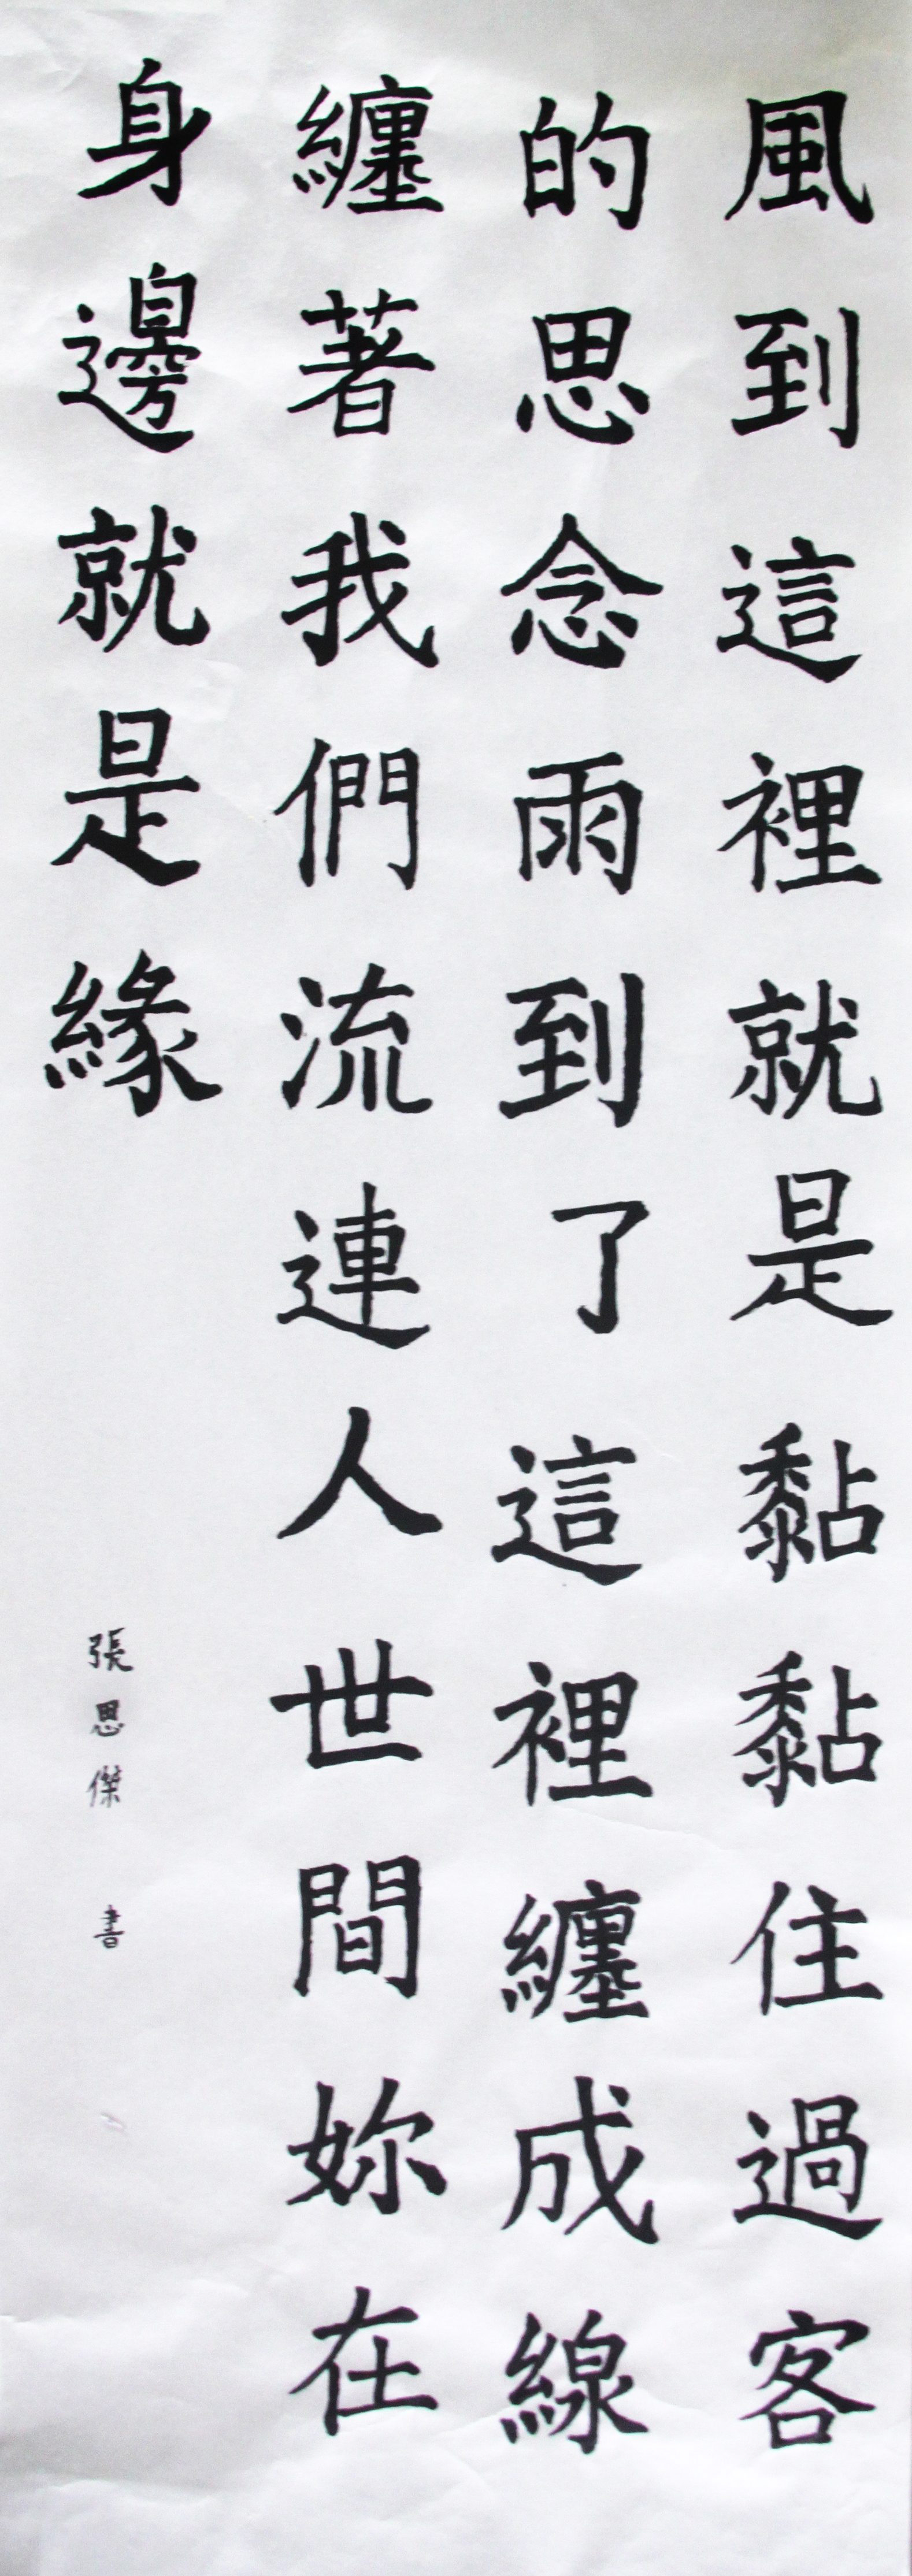 風到這裡就是黏黏住過客
的思念雨到了這裡纏成線
纏著我們流連人世間妳在
身邊就是緣
張思傑 書